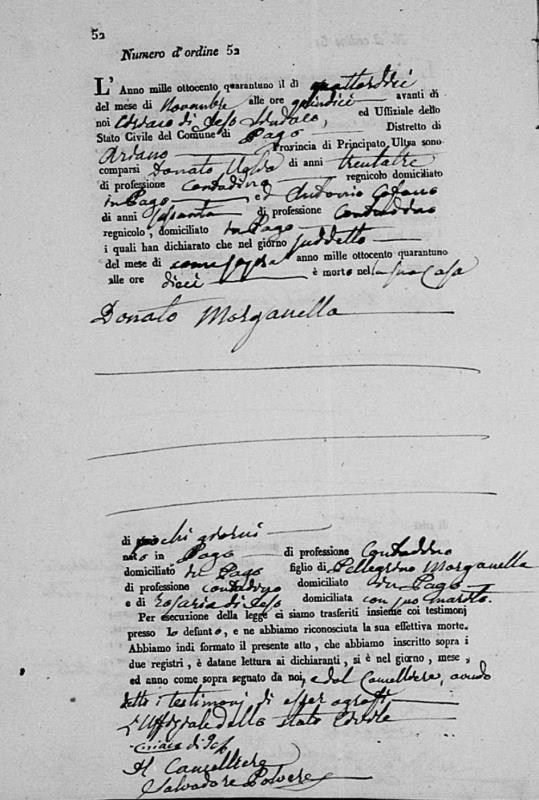 52
Numero d'ordine 52
L'Anno mille ottocento quarantuno il dì quattordici
del mese di Novembre alle ore quindici avanti di
noi di Leso Sindaco, ed Uffiziale dello
Stato Civile del Comune di Pago Distretto di
Ariano Provincia di Principato Ultra sono
comparsi Donato di anni trentatre
di professione Contadino regnicolo domiciliato
in Pago ed Antonio
di anni sessanta di professione Contadino
regnicolo, domiciliato in Pago
i quali han dichiarato che nel giorno suddetto
del mese di come sopra anno mille ottocento quarantuno
alle ore dieci è morto nella sua Casa
Donato Morganella
di pochi giorni
nato in Pago di professione Contadino
domiciliato in Pago figlio di Pellegrino Morganella
di professione contadino domiciliato in Pago
e di Rosaria di Leso domiciliata con suo marito.
Per esecuzione della legge ci siamo trasferiti insieme coi testimonj
presso lo defunto, e ne abbiamo riconosciuta la sua effettiva morte.
Abbiamo indi formato il presente atto, che abbiamo inscritto sopra i
due registri, è datane lettura ai dichiaranti, si è nel giorno, mese,
ed anno come sopra segnato da noi, e dal Cancelliere, avendo
detto i testimoni di esser
L'Uffiziale dello stato Civile
Il Cancelliere
Salvadore Polvere